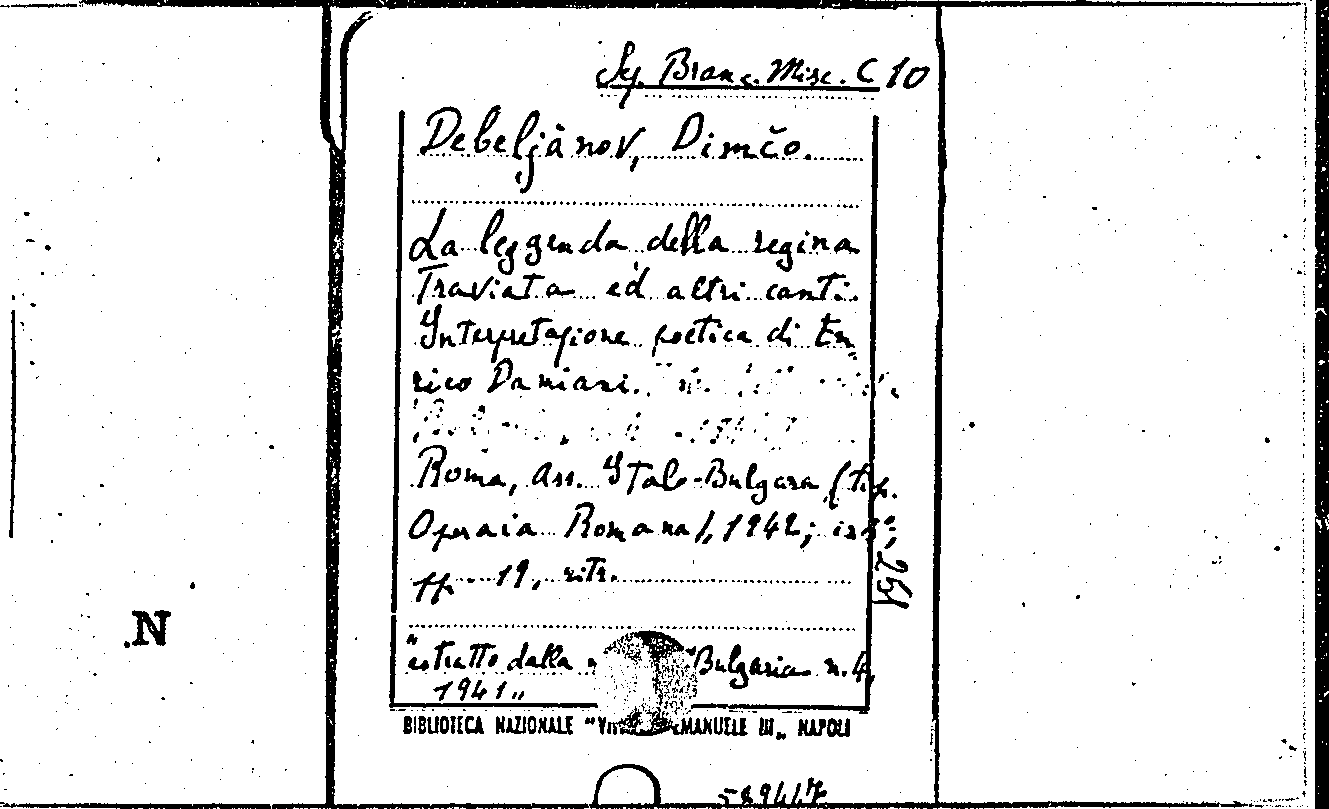 Sez. Branc. Misc. C 10
Debeljànov, Dimčo.
La leggenda della regina
Traviata ed altri canti.
Interpretazione poetica di En
rico Damiani.
Roma, Ass. Italo-Bulgara (tip.
Operaia Romana), 1942; in 8°,
pp. 19, ritr.
251
"estratto dalla "Bulgaria n. 4,
1941"
BIBLIOTECA NAZIONALE EMANUELE III„ NAPOLI
589447
N